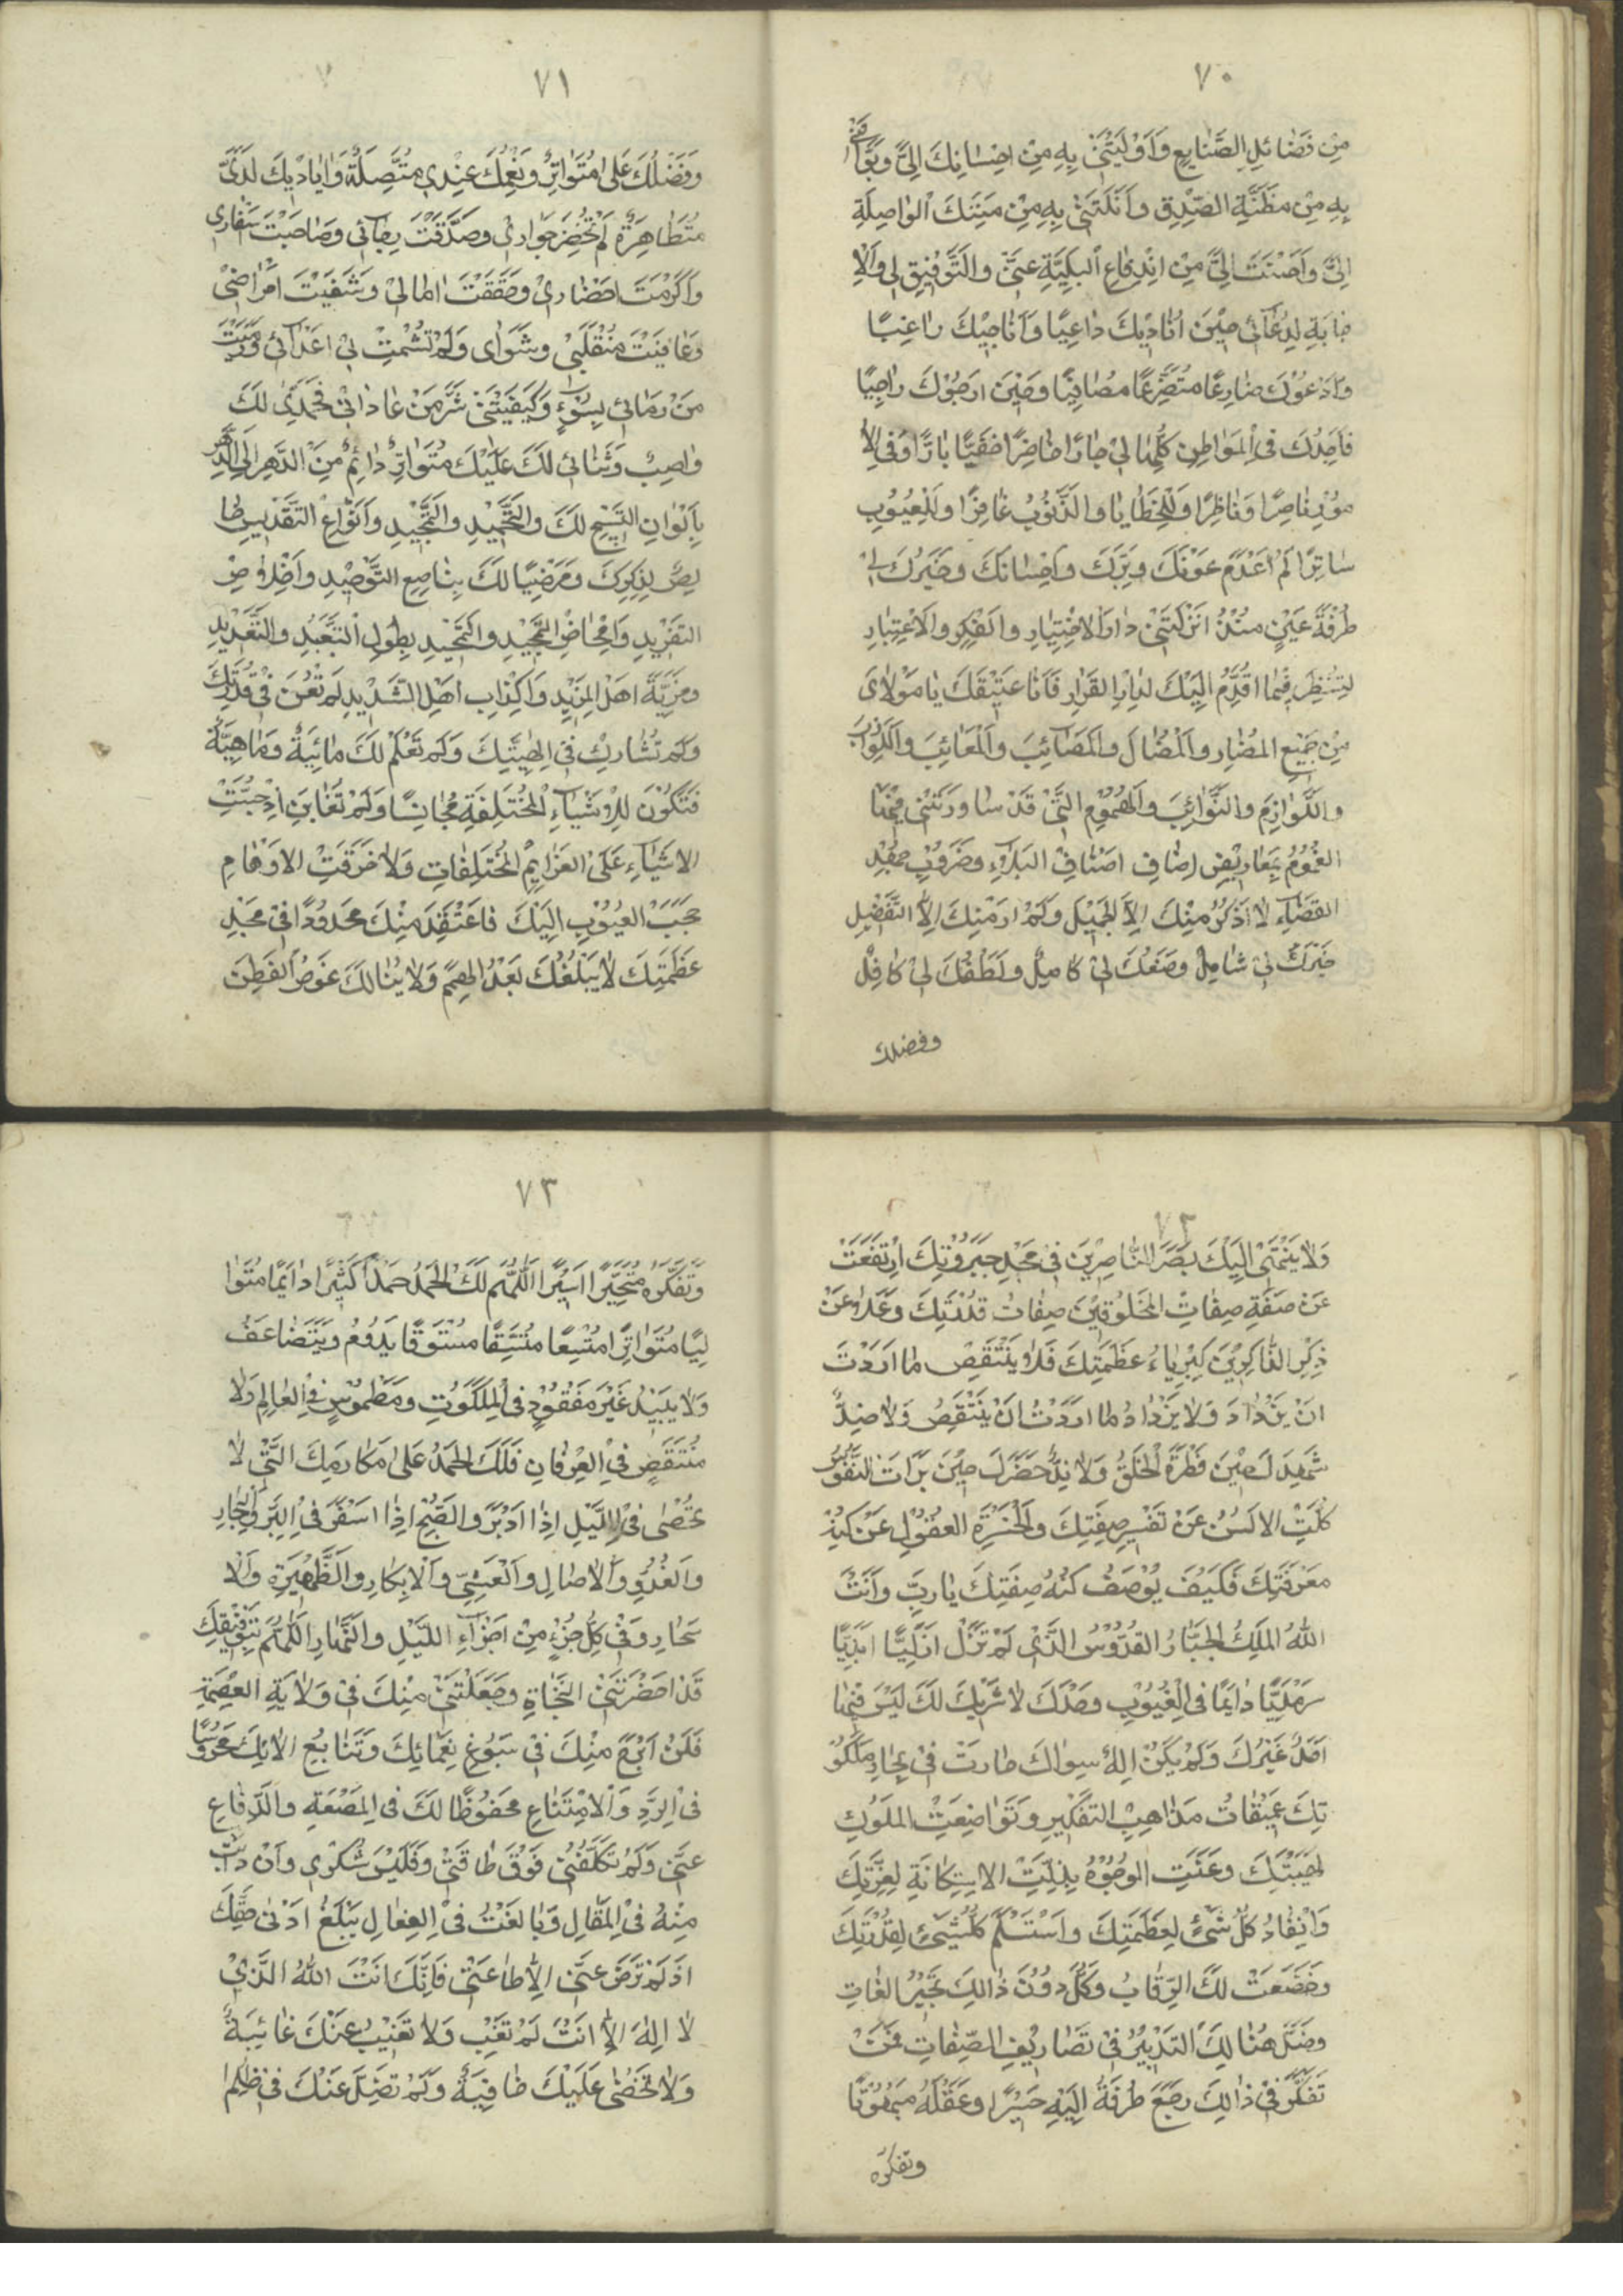 ٧٠
مِنْ فَضَائِلِ الصَّنَايِعِ وَاَوْلَيْتَنِي بِهِ مِنْ اِحْسَانِكَ اِلَيَّ وَبَوَّاْتَنِي
بِهِ مِنْ مَظَنَّةِ الصِّدْقِ وَاَنَلْتَنِي بِهِ مِنْ مِنَنِكَ الْوَاصِلَةِ
اِلَيَّ وَاَحْسَنْتَ اِلَيَّ مِنْ اِنْدِفَاعِ الْبَلِيَّةِ عَنِّي وَالتَّوْفِيقِ لِي وَالْاِ
جَابَةِ لِدُعَآئِي حِيْنَ اُنَادِيْكَ دَاعِيًا وَاُنَاجِيْكَ رَاغِبًا
وَاَدْعُوْكَ ضَارِعًا مُتَضَرِّعًا مُصَافِيًا وَحِيْنَ اَرْجُوْكَ رَاجِيًا
فَاَجِدُكَ فِي الْمَوَاطِنِ كُلِّهَا لِيْ جَارًا حَاضِرًا حَفِيًّا بَارًّا وَفِي الْاُ
مُوْرِ نَاصِرًا وَنَاظِرًا وَلِلْخَطَايَا وَالذُّنُوْبِ غَافِرًا وَلِلْعُيُوْبِ
سَاتِرًا لَمْ اَعْدَمْ عَوْنَكَ وَبِرَّكَ وَاِحْسَانَكَ وَخَيْرَكَ لِيْ
طَرْفَةَ عَيْنٍ مُنْذُ اَنْزَلْتَنِيْ دَارَ الْاِخْتِيَارِ وَالْفِكْرِ وَالْاِعْتِبَارِ
لِتَنْظُرَ فِيْمَا اُقَدِّمُ اِلَيْكَ لِدَارِ الْقَرَارِ فَاَنَا عَتِيْقُكَ يَا مَوْلَايَ
مِنْ جَمِيْعِ الْمَضَارِ وَالْمَضَالِ وَالْمَصَآئِبِ وَالْمَعَائِبِ وَاللَّوَازِبِ
وَاللَّوَازِمِ وَالنَّوَائِبِ وَالْهُمُوْمِ الَّتِيْ قَدْ سَاوَرَتْنِيْ فِيْهَا
الْغُمُوْمُ بِمَعَارِيْضِ اَصْنَافِ الْبَلَآءِ وَضُرُوْبِ جَهْدِ
الْقَضَآءِ لَا اَذْكُرُ مِنْكَ اِلَّا الْجَمِيْلَ وَلَمْ اَرَ مِنْكَ اِلَّا التَّفْضِيْلِ
خَيْرُكَ لِيْ شَامِلٌ وَصُنْعُكَ لِيْ كَامِلٌ وَلُطْفُكَ لِيْ كَافِلٌ
وفضلك
٧١
وَفَضْلُكَ عَلَىَّ مُتَوَاتِرٌ وَنِعَمُكَ عِنْدِي مُتَّصِلَةٌ وَاَيَادِيْكَ لَدَيَّ
مُتَظَاهِرَةٌ لَمْ تُخْفِرْ جَوَارِيْ وَصَدَّقْتَ رَجَآئِي وَصَاحَبْتَ اَسْفَارِي
وَاَكْرَمْتَ اَحْضَارِيْ وَحَقَّقْتَ اٰمَالِيْ وَشَفَيْتَ اَمْرَاضِيْ
وَعَافَيْتَ مُنْقَلَبِيْ وَمَثْوَايَ وَلَمْ تُشْمِتْ بِيْ اَعْدَآئِي وَرَمَيْتَ
مَنْ رَمَانِي بِسُوْءٍ وَكَفَيْتَنِيْ شَرَّ مَنْ عَادَانِيْ فَحَمْدِيْ لَكَ
وَاصِبٌ وَثَنَائِي لَكَ عَلَيْكَ مُتَوَاتِرٌ دَائِمٌ مِنَ الدَّهْرِ اِلَى الدَّهْرِ
بِاَلْوَانِ التَّسْبِيْحِ لَكَ وَالتَّحْمِيْدِ وَالتَّمْجِيْدِ وَاَنْوَاعِ التَّقْدِيْسِ خَا
لِصًا لِذِكْرِكَ وَمَرْضِيًّا لَكَ بِنَاصِعِ التَّوْحِيْدِ وَاِخْلَاصِ
التَّفْرِيْدِ وَاِمْحَاضِ التَّمْجِيْدِ وَالتَّحْمِيْدِ بِطُوْلِ التَّعَبُّدِ وَالتَّعْدِيْدِ
وَمَزِيَّةِ اَهْلِ الْمَزِيْدِ وَاِكْذَابِ اَهْلِ التَّنْدِيْدِ لَمْ تُعَنْ فِيْ قُدْرَتِكَ
وَلَمْ تُشَارَكْ فِي اِلٰهِيَّتِكَ وَلَمْ تُعْلَمْ لَكَ مَائِيَّةٌ وَمَاهِيَّةٌ
فَتَكُوْنَ لِلْاَشْيَآءِ الْمُخْتَلِفَةِ مُجَانِسًا وَلَمْ تُعَايَنْ اِذْ حُبِسَتِ
الْاَشْيَآءِ عَلَى الْعَزَايِمِ الْمُخْتَلِفَاتِ وَلَا خَرَقَتِ الْاَوْهَامِ
حُجُبَ الْغُيُوْبِ اِلَيْكَ فَاَعْتَقِدَ مِنْكَ مَحْدُوْدًا فِيْ مَجْدِ
عَظَمَتِكَ لَا يَبْلُغُكَ بُعْدُ الْهِمَمِ وَلَا يَنَالُكَ غَوْصُ الْفِطَنِ
٧٢
وَلَا يَنْتَهِيْ اِلَيْكَ بَصَرُ النَّاظِرِيْنَ فِيْ مَجْدِ جَبَرُوْتِكَ اِرْتَفَعَتْ
عَنْ صِفَةِ صِفَاتِ الْمَخْلُوْقِيْنَ صِفَاتُ قُدْرَتِكَ وَعَلَا عَنْ
ذِكْرِ الذَّاكِرِيْنَ كِبْرِيَاءُ عَظَمَتِكَ فَلَا يَنْتَقِصُ مَا اَرَدْتَ
اَنْ يَزْدَادَ وَلَا يَزْدَادُ مَا اَرَدْتَ اَنْ يَنْتَقِصَ وَلَا ضِدٌّ
شَهِدَكَ حِيْنَ فَطَرْتَ الْخَلْقَ وَلَا نِدٌّ حَضَرَكَ حِيْنَ بَرَاْتَ النُّفُوْسَ
كَلَّتِ الْاَلْسُنُ عَنْ تَفْسِيْرِ صِفَتِكَ وَانْحَسَرَتِ الْعُقُوْلُ عَنْ كُنْهِ
مَعْرِفَتِكَ فَكَيْفَ يُوْصَفُ كُنْهُ صِفَتِكَ يَا رَبِّ وَاَنْتَ
اللّٰهُ الْمَلِكُ الْجَبَّارُ الْقُدُّوْسُ الَّذِيْ لَمْ تَزَلْ اَزَلِيًّا اَبَدِيًّا
سَرْمَدِيًّا دَايِمًا فِي الْغُيُوْبِ وَحْدَكَ لَا شَرِيْكَ لَكَ لَيْسَ فِيْهَا
اَحَدٌ غَيْرُكَ وَلَمْ يَكُنْ اِلٰهٌ سِوَاكَ حَارَتْ فِيْ بِحَارِ مَلَكُوْ
تِكَ عَمِيْقَاتُ مَذَاهِبِ التَّفْكِيْرِ وَتَوَاضَعَتِ الْمُلُوْكِ
لِهَيْبَتِكَ وَعَنَتِ الْوُجُوْهُ بِذِلَّةِ الْاِسْتِكَانَةِ لِعِزَّتِكَ
وَانْقَادَ كُلُّ شَيْءٍ لِعَظَمَتِكَ وَاسْتَسْلَمَ كُلُّ شَيْءٍ لِقُدْرَتِكَ
وَخَضَعَتْ لَكَ الرِّقَابُ وَكَلَّ دُوْنَ ذَالِكَ تَحْبِيْرُ اللُّغَاتِ
وَضَلَّ هُنَالِكَ التَّدْبِيْرُ فِيْ تَصَارِيْفِ الصِّفَاتِ فَمَنْ
تَفَكَّرَ فِيْ ذَالِكَ رَجَعَ طَرْفُهُ اِلَيْهِ حَسِيْرًا وَعَقْلُهُ مَبْهُوْتًا
وتفكره
٧٣
وَتَفَكُّرُهُ مُتَحَيِّرًا اَسِيْرًا اَللّٰهُمَّ لَكَ الْحَمْدُ حَمْدًا كَثِيْرًا دَايِمًا مُتَوَا
لِيًا مُتَوَاتِرًا مُتَّسِعًا مُتَّسِقًا مُسْتَوْثِقًا يَدُوْمُ وَيَتَضَاعَفُ
وَلَا يَبِيْدُ غَيْرَ مَفْقُوْدٍ فِي الْمَلَكُوْتِ وَمَطْمُوْسٍ فِي الْعَالَمِ وَلَا
مُنْتَقَصٍ فِي الْعِرْفَانِ فَلَكَ الْحَمْدُ عَلَى مَكَارِمِكَ الَّتِيْ لَا
تُحْصٰى فِي اللَّيْلِ اِذَا اَدْبَرَ وَالصُّبْحِ اِذَا اَسْفَرَ فِي الْبَرِّ وَالْبِحَارِ
وَالْغُدُوِّ وَالْاٰصَالِ وَالْعَشِيِّ وَالْاِبْكَارِ وَالظَّهِيْرَةِ وَالْاَ
سْحَارِ وَفِيْ كُلِّ جُزْءٍ مِنْ اَجْزَآءِ اللَّيْلِ وَالنَّهَارِ اَللّٰهُمَّ بِتَوْفِيْقِكَ
قَدْ اَحْضَرْتَنِيْ النَّجَاةِ وَجَعَلْتَنِيْ مِنْكَ فِيْ وَلَايَةِ الْعِصْمَةِ
فَلَمْ اَبْرَحْ مِنْكَ فِيْ سُبُوْغِ نَعْمَآئِكَ وَتَتَابُعِ اٰلَائِكَ مَحْرُوْسًا
فِي الرَّدِّ وَالْاِمْتِنَاعِ مَحْفُوْظًا لَكَ فِي الْمَنْعَةِ وَالدِّفَاعِ
عَنِّيْ وَلَمْ تُكَلِّفْنِيْ فَوْقَ طَاقَتِيْ وَفَلَيْسَ شُكْرِيْ وَاِنْ دَاَبْتُ
مِنْهُ فِي الْمَقَالِ وَبَالَغْتُ فِي الْفِعَالِ يَبْلُغُ اَدْنٰى حَقِّكَ
اِذْ لَمْ تَرْضَ عَنِّيْ اِلَّا طَاعَتِيْ فَاِنَّكَ اَنْتَ اللّٰهُ الَّذِيْ
لَا اِلٰهَ اِلَّا اَنْتَ لَمْ تَغِبْ وَلَا تَغِيْبُ عَنْكَ غَائِبَةٌ
وَلَا تَخْفٰى عَلَيْكَ خَافِيَةٌ وَلَمْ تَضِلَّ عَنْكَ فِيْ ظُلَمِ